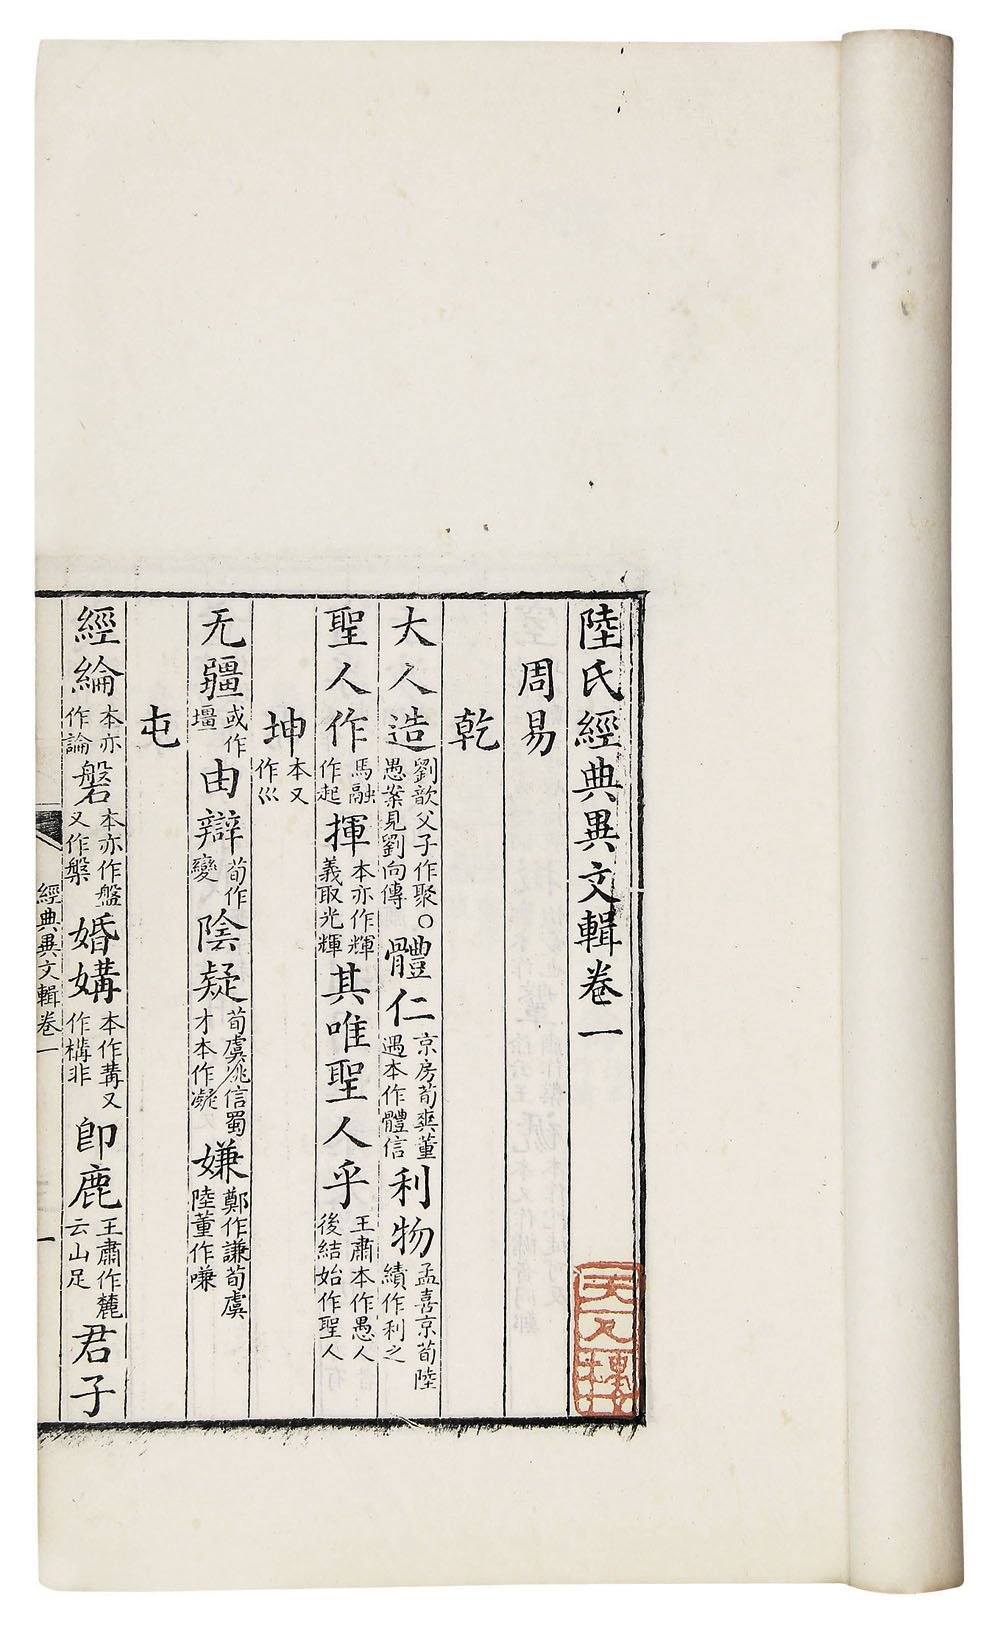 陸氏經典異文輯卷一
周易
乾
大人造劉歆父子作聚○愚案見劉向傳體仁京房荀爽董遇本作體信利物孟喜京荀陸績作利之
聖人作馬融作起揮本亦作輝義取光輝其唯聖人乎王肅本作愚人後結始作聖人
坤本又作巛
无疆或作壃由辯荀作變陰疑荀虞姚信蜀才本作凝嫌鄭作謙荀虞陸董作嗛
屯
經綸本亦作論磐本亦作盤又作槃婚媾本作冓又作構非即鹿王肅作麓云山足君子
經典異文輯卷一
一